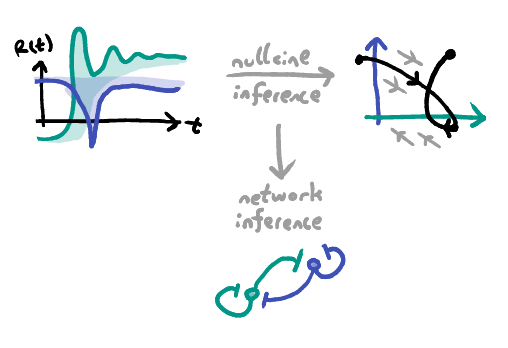 R(t)
t
nullcine
inference
network
inference